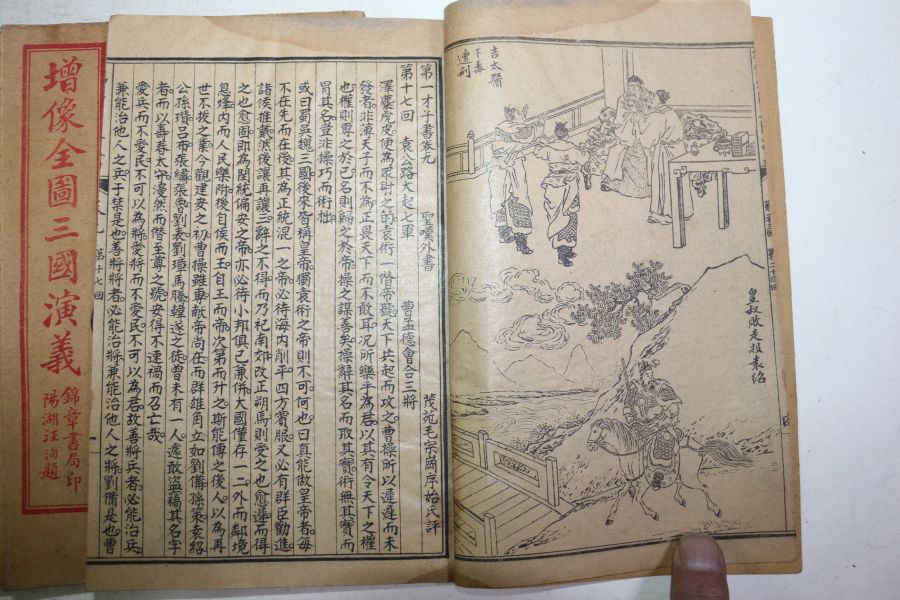 吉太醫
下毒
遭刑
皇叔敗走投袁紹
第一才子書卷九　聖嘆外書　茂苑毛宗岡序始氏評
第十七回　袁公路大起七軍　曹孟德會合三將
澤麋虎皮便為眾射之的袁術一僭帝號天下共起而攻之曹操所以遲遲而未
發者非薄天子而不為正畏天下而不敢耳況所樂乎為君以其有令天下之權
也權則專之於己名則歸之於帝操之謀善矣操辭其名而取其實術無其實而
冒其名豈非操巧而術拙
或曰蜀吳魏三國後來皆稱皇帝獨袁術之帝則不可何也曰真能做皇帝者每
不在先而在後其為正統混一之帝必待海內削平四方賓服又必有群臣勸進
諸侯推戴然後讓再讓三辭之不得而乃祀南郊改正朔焉則受之也愈遲而得
之也愈固即為閏統偏安之帝亦必待小邦俱已兼併大國僅存一二外而鄰境
息烽內而人民樂附後自侯而王自王而帝次第而升之斯能傳之後人以為再
世不拔之業今觀建安之初曹操雖專獻帝尚在而群雄角立如劉備孫策袁紹
公孫瓚呂布張繡張魯劉表劉璋馬騰韓遂之徒曾未有一人遽敢盜竊其名字
者而以壽春太守漫然而僭至尊之號安得不速禍而召亡哉
愛兵而不愛民不可以為將愛將而不愛民不可以為君故善將兵者必能治兵
兼能治他人之兵于禁是也善將將者必能治將兼能治他人之將劉備是也曹
第十七回
增像全圖三國演義
錦章書局印
陽湖汪洵題